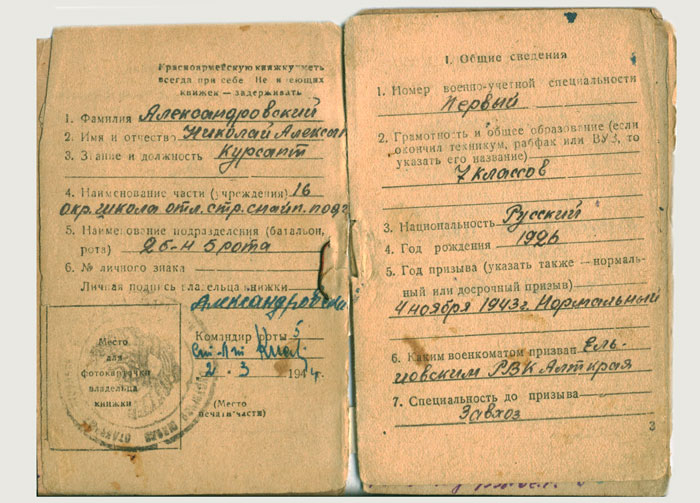 Красноармейскую книжку иметь
всегда при себе. Не имеющих
книжек — задерживать
1. Фамилия Александровский
2. Имя и отчество Николай Алексан
3. Звание и должность Курсант
4. Наименование части (учреждения) 16
окр. школа отл. стр. снайп. подг
5. Наименование подразделения (батальон,
рота) 2 б-н 5 рота
6. № личного знака
Личная подпись владельца книжки
Александровски
Место
для
фотокарточки
владельца
книжки
Командир роты 5
Ст. Л-т
2. 3 1944.
(Место
печати части)
I. Общие сведения
1. Номер военно-учетной специальности
Первый
2. Грамотность и общее образование (если
окончил техникум, рабфак или ВУЗ, то
указать его название)
7 классов
3. Национальность Русский
4. Год рождения 1926
5. Год призыва (указать также — нормаль-
ный или досрочный призыв)
4 ноября 1943г. Нормальный
6. Каким военкоматом призван Ель-
цовским РВК Алт края
7. Специальность до призыва
Завхоз
3